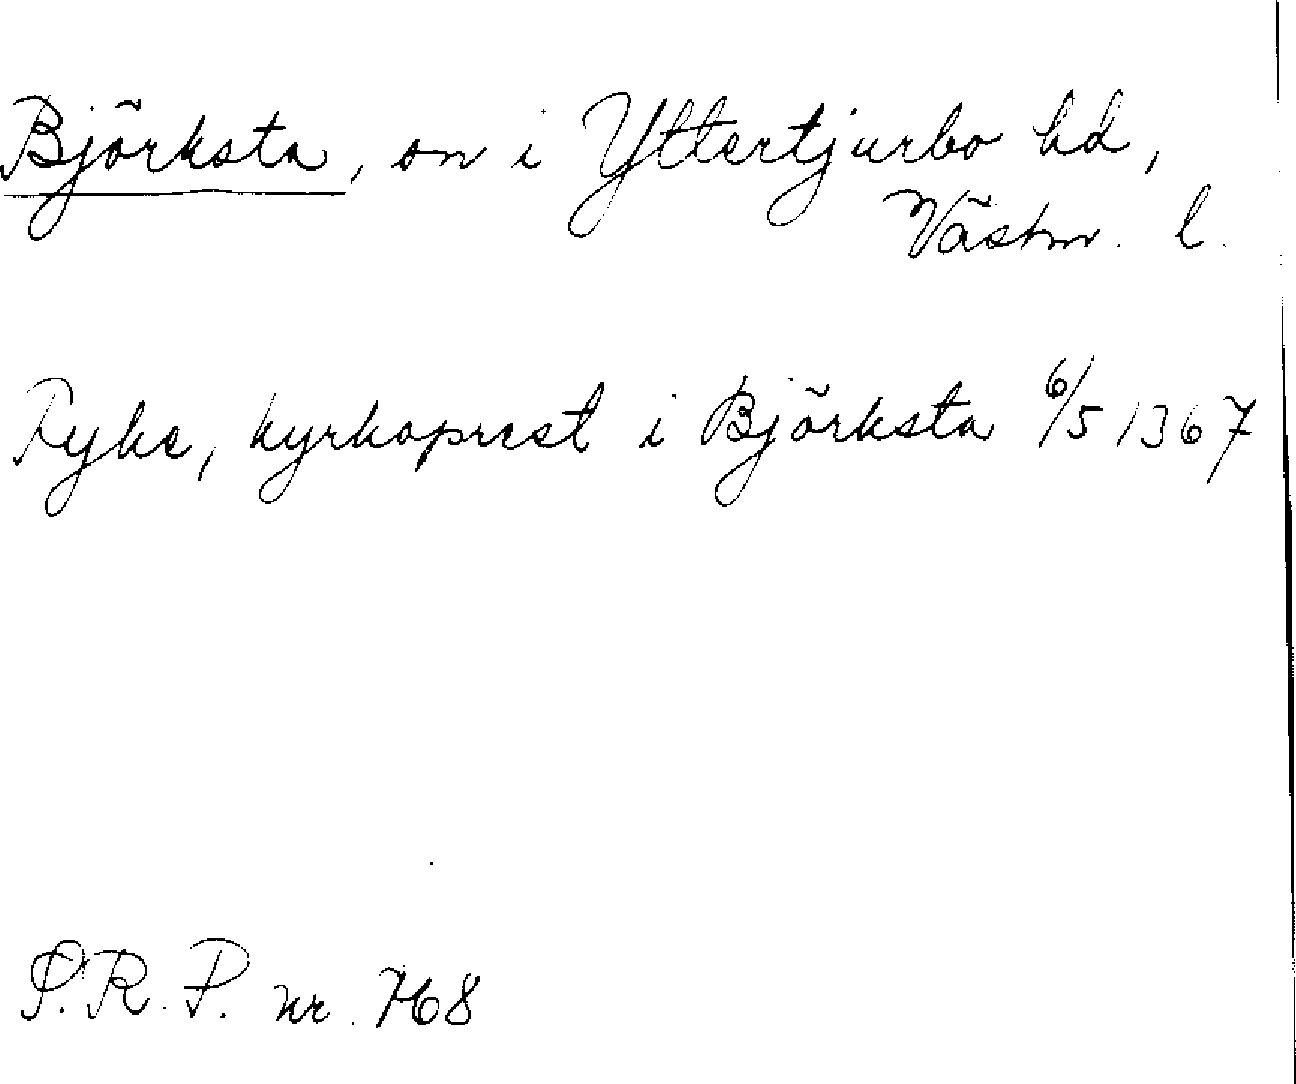 Björksta, sn i Yttertjurbo hd,
Västm. l.
Ryke, kyrkoprest i Björksta 6/5 1367
S.R.P. nr. 768